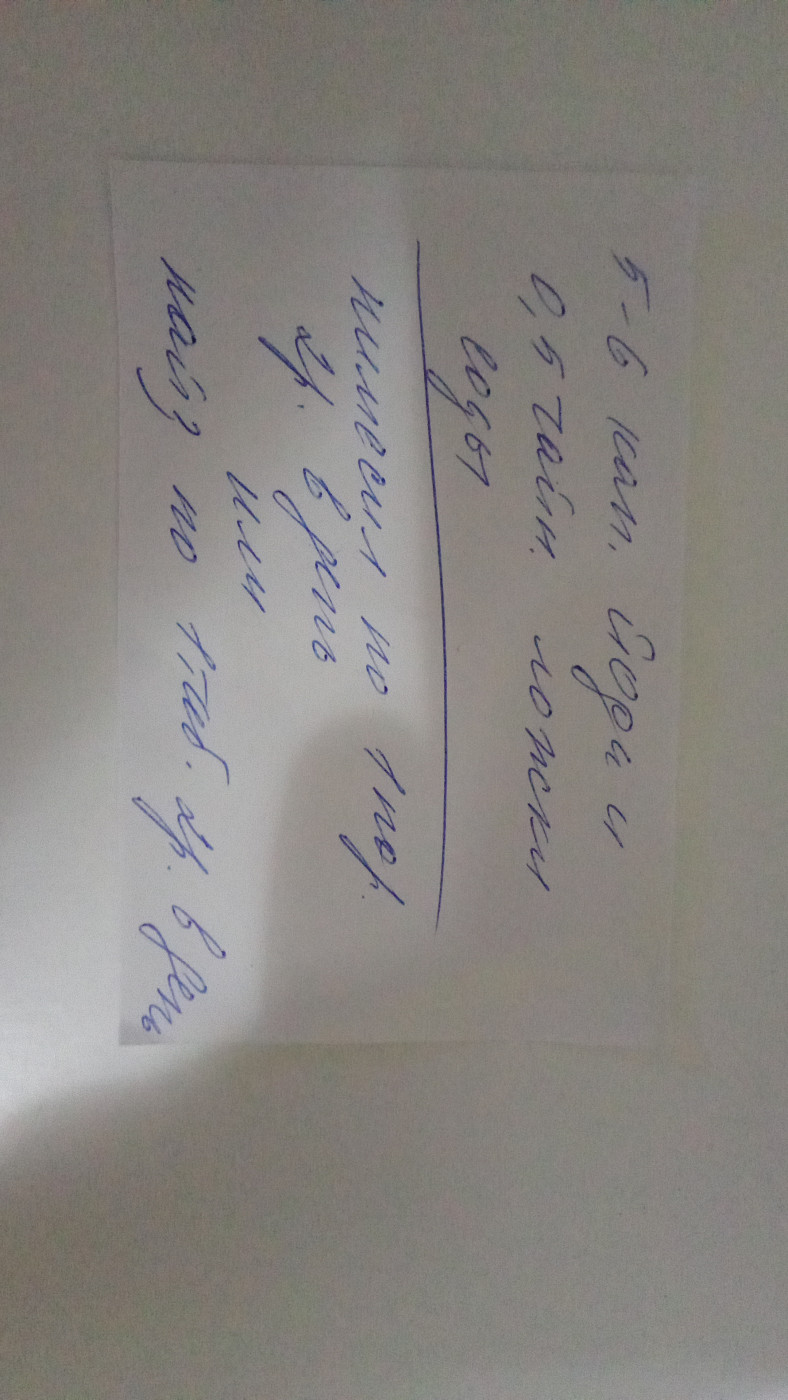 5-6 кап. йода и
0,5 чайн. ложки
соды
нимесил по 1 пор.
2р. в день
или
найз по 1 таб. 2р. в день